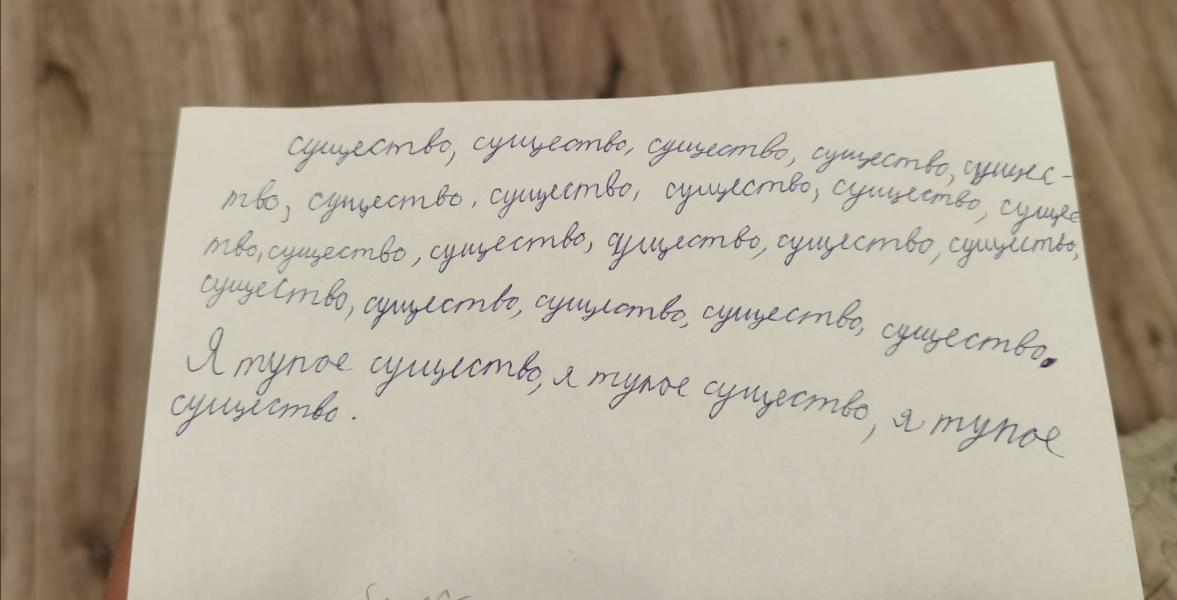 существо, существо, существо, существо, сущес-
тво, существо, существо, существо, существо, сущес
тво, существо, существо, существо, существо, существо,
существо, существо, существо, существо, существо.
Я тупое существо, я тупое существо, я тупое
существо.